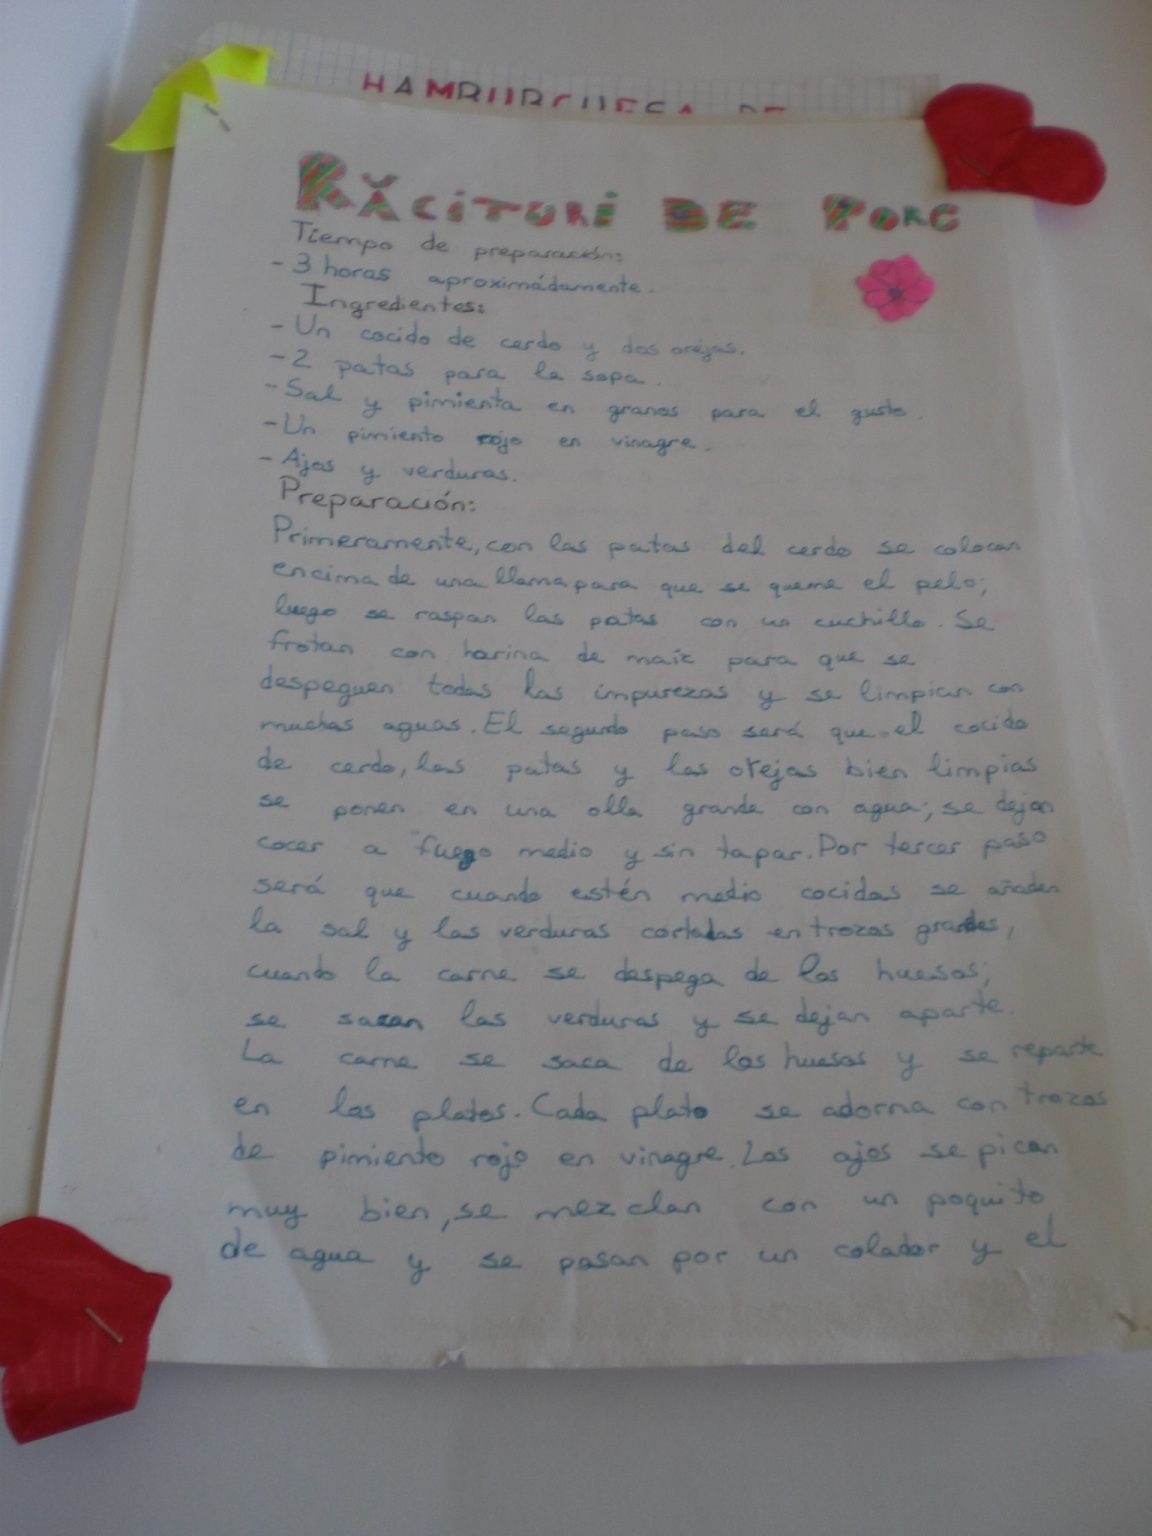 HAMBURGUESA DE
RĂCITURI DE PORC
Tiempo de preparación:
- 3 horas aproximádamente.
Ingredientes:
- Un cocido de cerdo y dos orejas.
- 2 patas para la sopa.
- Sal y pimienta en granos para el gusto.
- Un pimiento rojo en vinagre.
- Ajos y verduras.
Preparación:
Primeramente, con las patas del cerdo se colocan
encima de una llama para que se queme el pelo;
luego se raspan las patas con un cuchillo. Se
frotan con harina de maíz para que se
despeguen todas las impurezas y se limpian con
muchas aguas. El segundo paso será que el cocido
de cerdo, las patas y las orejas bien limpias
se ponen en una olla grande con agua; se dejan
cocer a fuego medio y sin tapar. Por tercer paso
será que cuando estén medio cocidas se añaden
la sal y las verduras cortadas en trozos grandes,
cuando la carne se despega de los huesos;
se sacan las verduras y se dejan aparte.
La carne se saca de los huesos y se reparte
en los platos. Cada plato se adorna con trozos
de pimiento rojo en vinagre. Los ajos se pican
muy bien, se mezclan con un poquito
de agua y se pasan por un colador y el